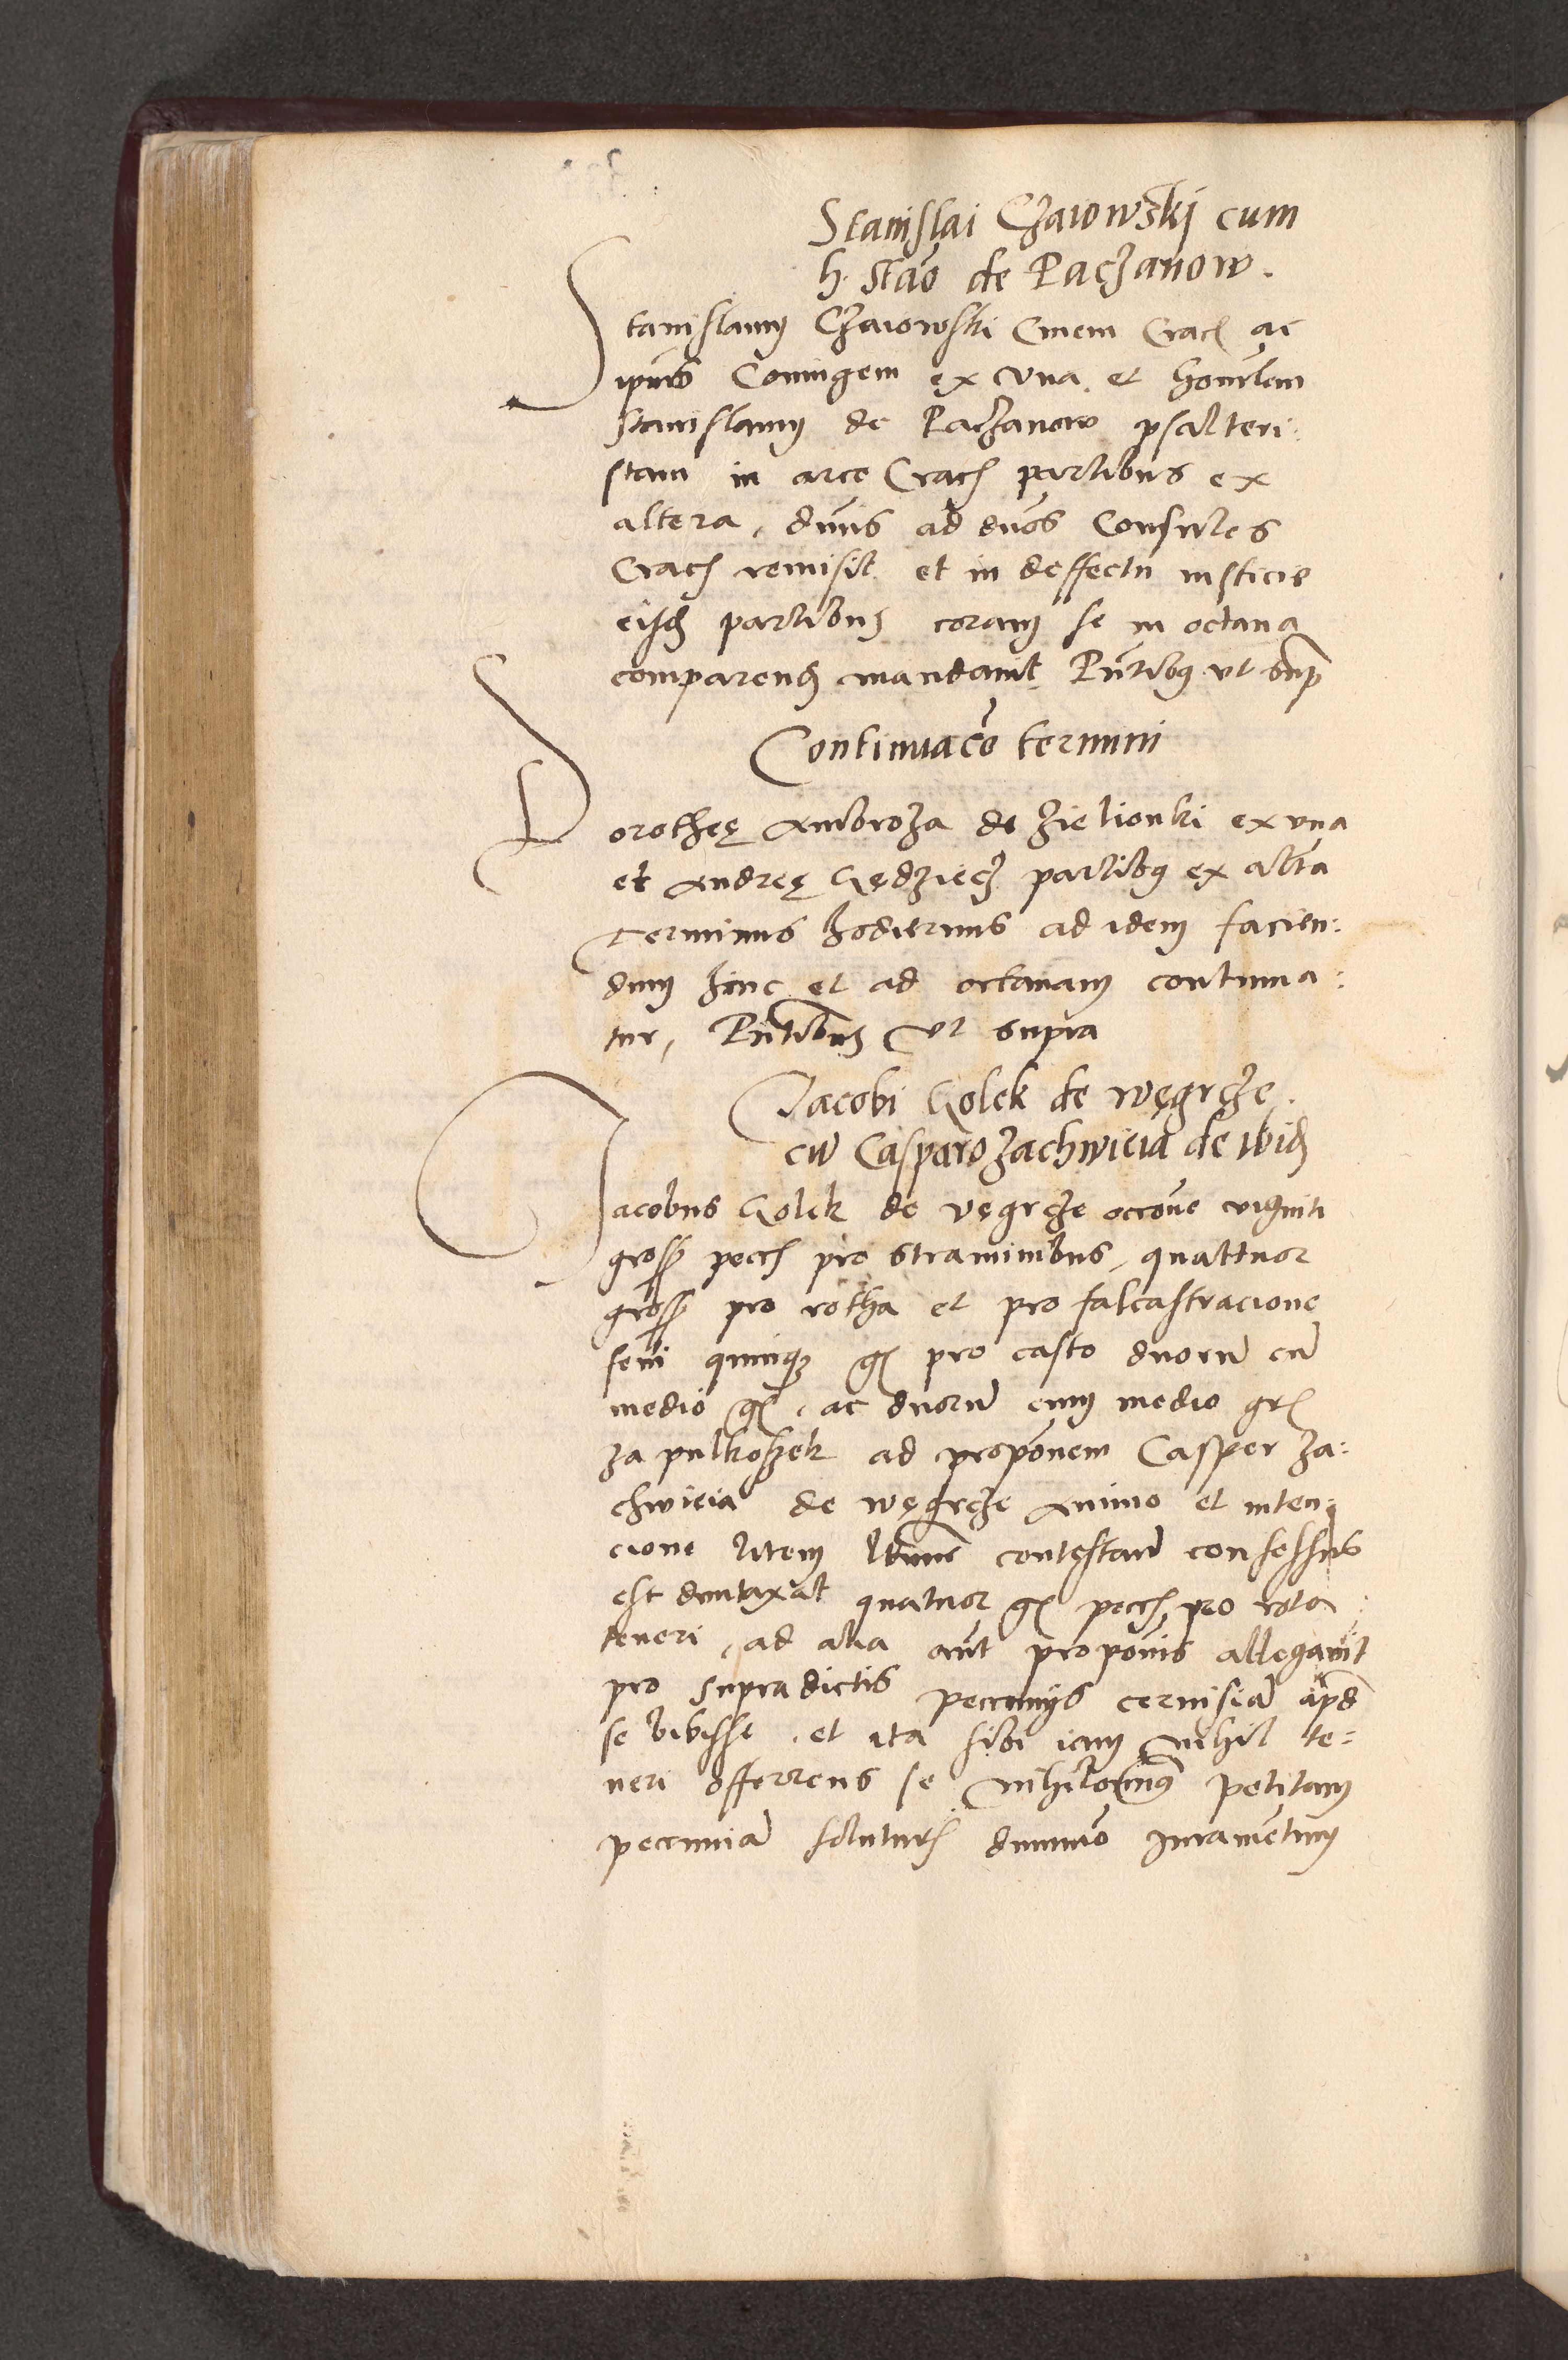 Stanislai Czaiowskj cum
h. Stão de Paczanow.
Stanislaum Czaiowski Civem Crac ac
ipius Coniugem ex una et honrlem
Stanislaum de Paczanow psalteri:
stam in arce Crac partibus ex
altera, dnus ad dnos Consules
Crac remisit et in deffectu iusticie
eisd partibus coram se in octava
comparend mandavit Pntibus ut supr
Continuacõ termini
Dorotheę Ambroza de Zielionki ex una
et Andreę Kędzierz partibus ex altra
Terminus hodiernus ad idem facien:
dum hinc et ad octavam continua:
tur, Pntibus ut supra
Jacobi Golek de węgrcze.
cũ Casparo Zachwieia de ibid
Jacobus Golek de vęgrcze occõne viginti
gross pecc pro straminibus, quattuor
gross pro rotha et pro falcastracione
feni quinque gr pro casto duorũ cũ
medio gr, ac duorũ cum medio gr
za pulkoszek ad propõnem Casper Za:
chwieia de węgrcze animo et inten:
cione litem contestand confessus
est duntaxat quatuor gr pecc pro rota
teneri, ad alia aut propõnis allegavit
pro supradictis peccuniis cervisiã apud
se bibisse, et ita sibi iam nihil te=
neri offerrens se nihilominus petitam
peccuniã soluturum dummõ iuramentum